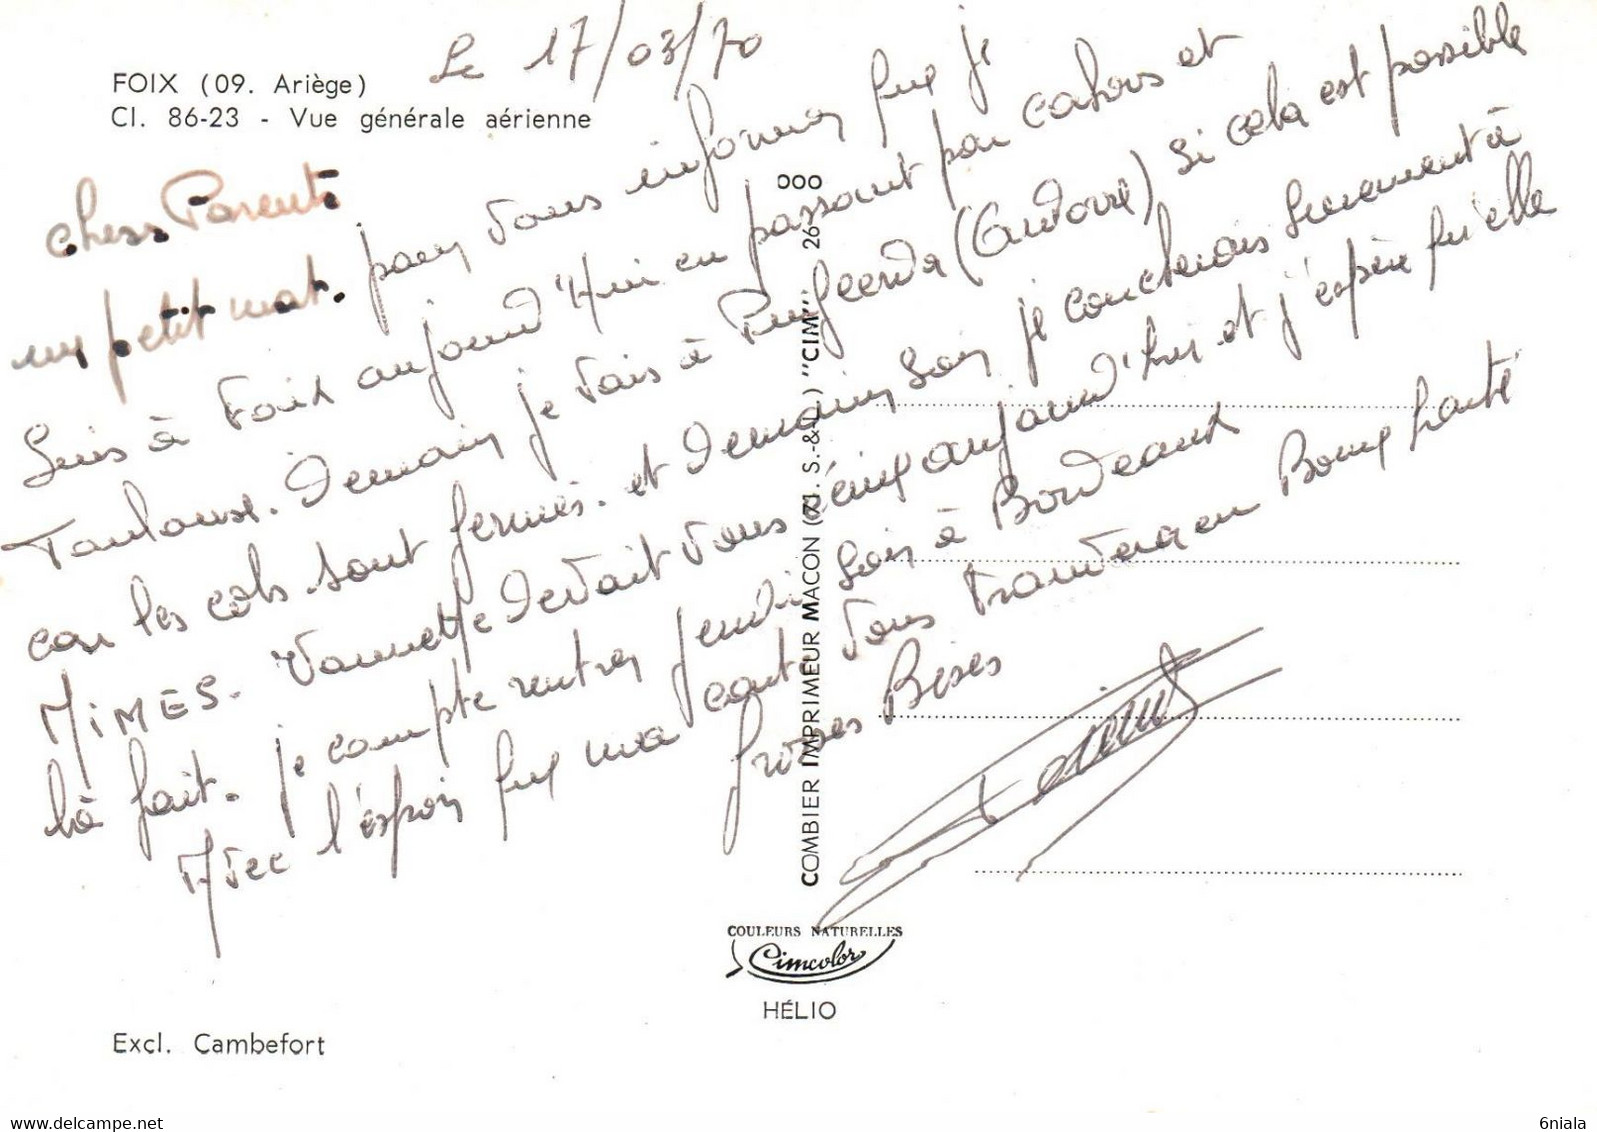 FOIX (09. Ariège)
Cl. 86-23 - Vue générale aérienne
Le 17/03/70
chers Parents
un petit mot. pour vous informer que je
suis à Foix aujourd'Hui en passant par cahors et
Toulouse. Demain je vais à Puigcerda (Andorre) si cela est possible
car les cols sont fermés. et Demain soir je coucherais surement à
NîMES. Vannette devait vous écrire aujourd'hui et j'espère qu'elle
là fait. je compte rentrer jeudi soir à Bordeaux
Avec l'espoir que ma carte vous trouvera en Bonne santé
Grosses Bises
COMBIER IMPRIMEUR MACON (71. S.-&-L.) "CIM" 26 000
COULEURS NATURELLES
Cimcolor
HÉLIO
Excl. Cambefort
www.delcampe.net
6niala